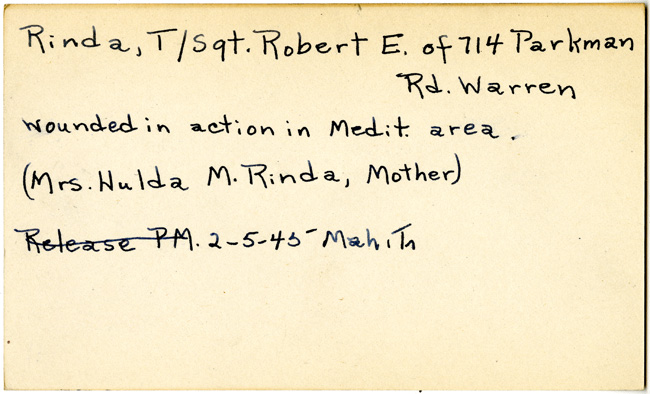 Rinda, T/Sgt. Robert E. of 714 Parkman
Rd. Warren
wounded in action in Medit. area.
(Mrs. Hulda M. Rinda, Mother)
Release PM. 2-5-45 Mah. Th